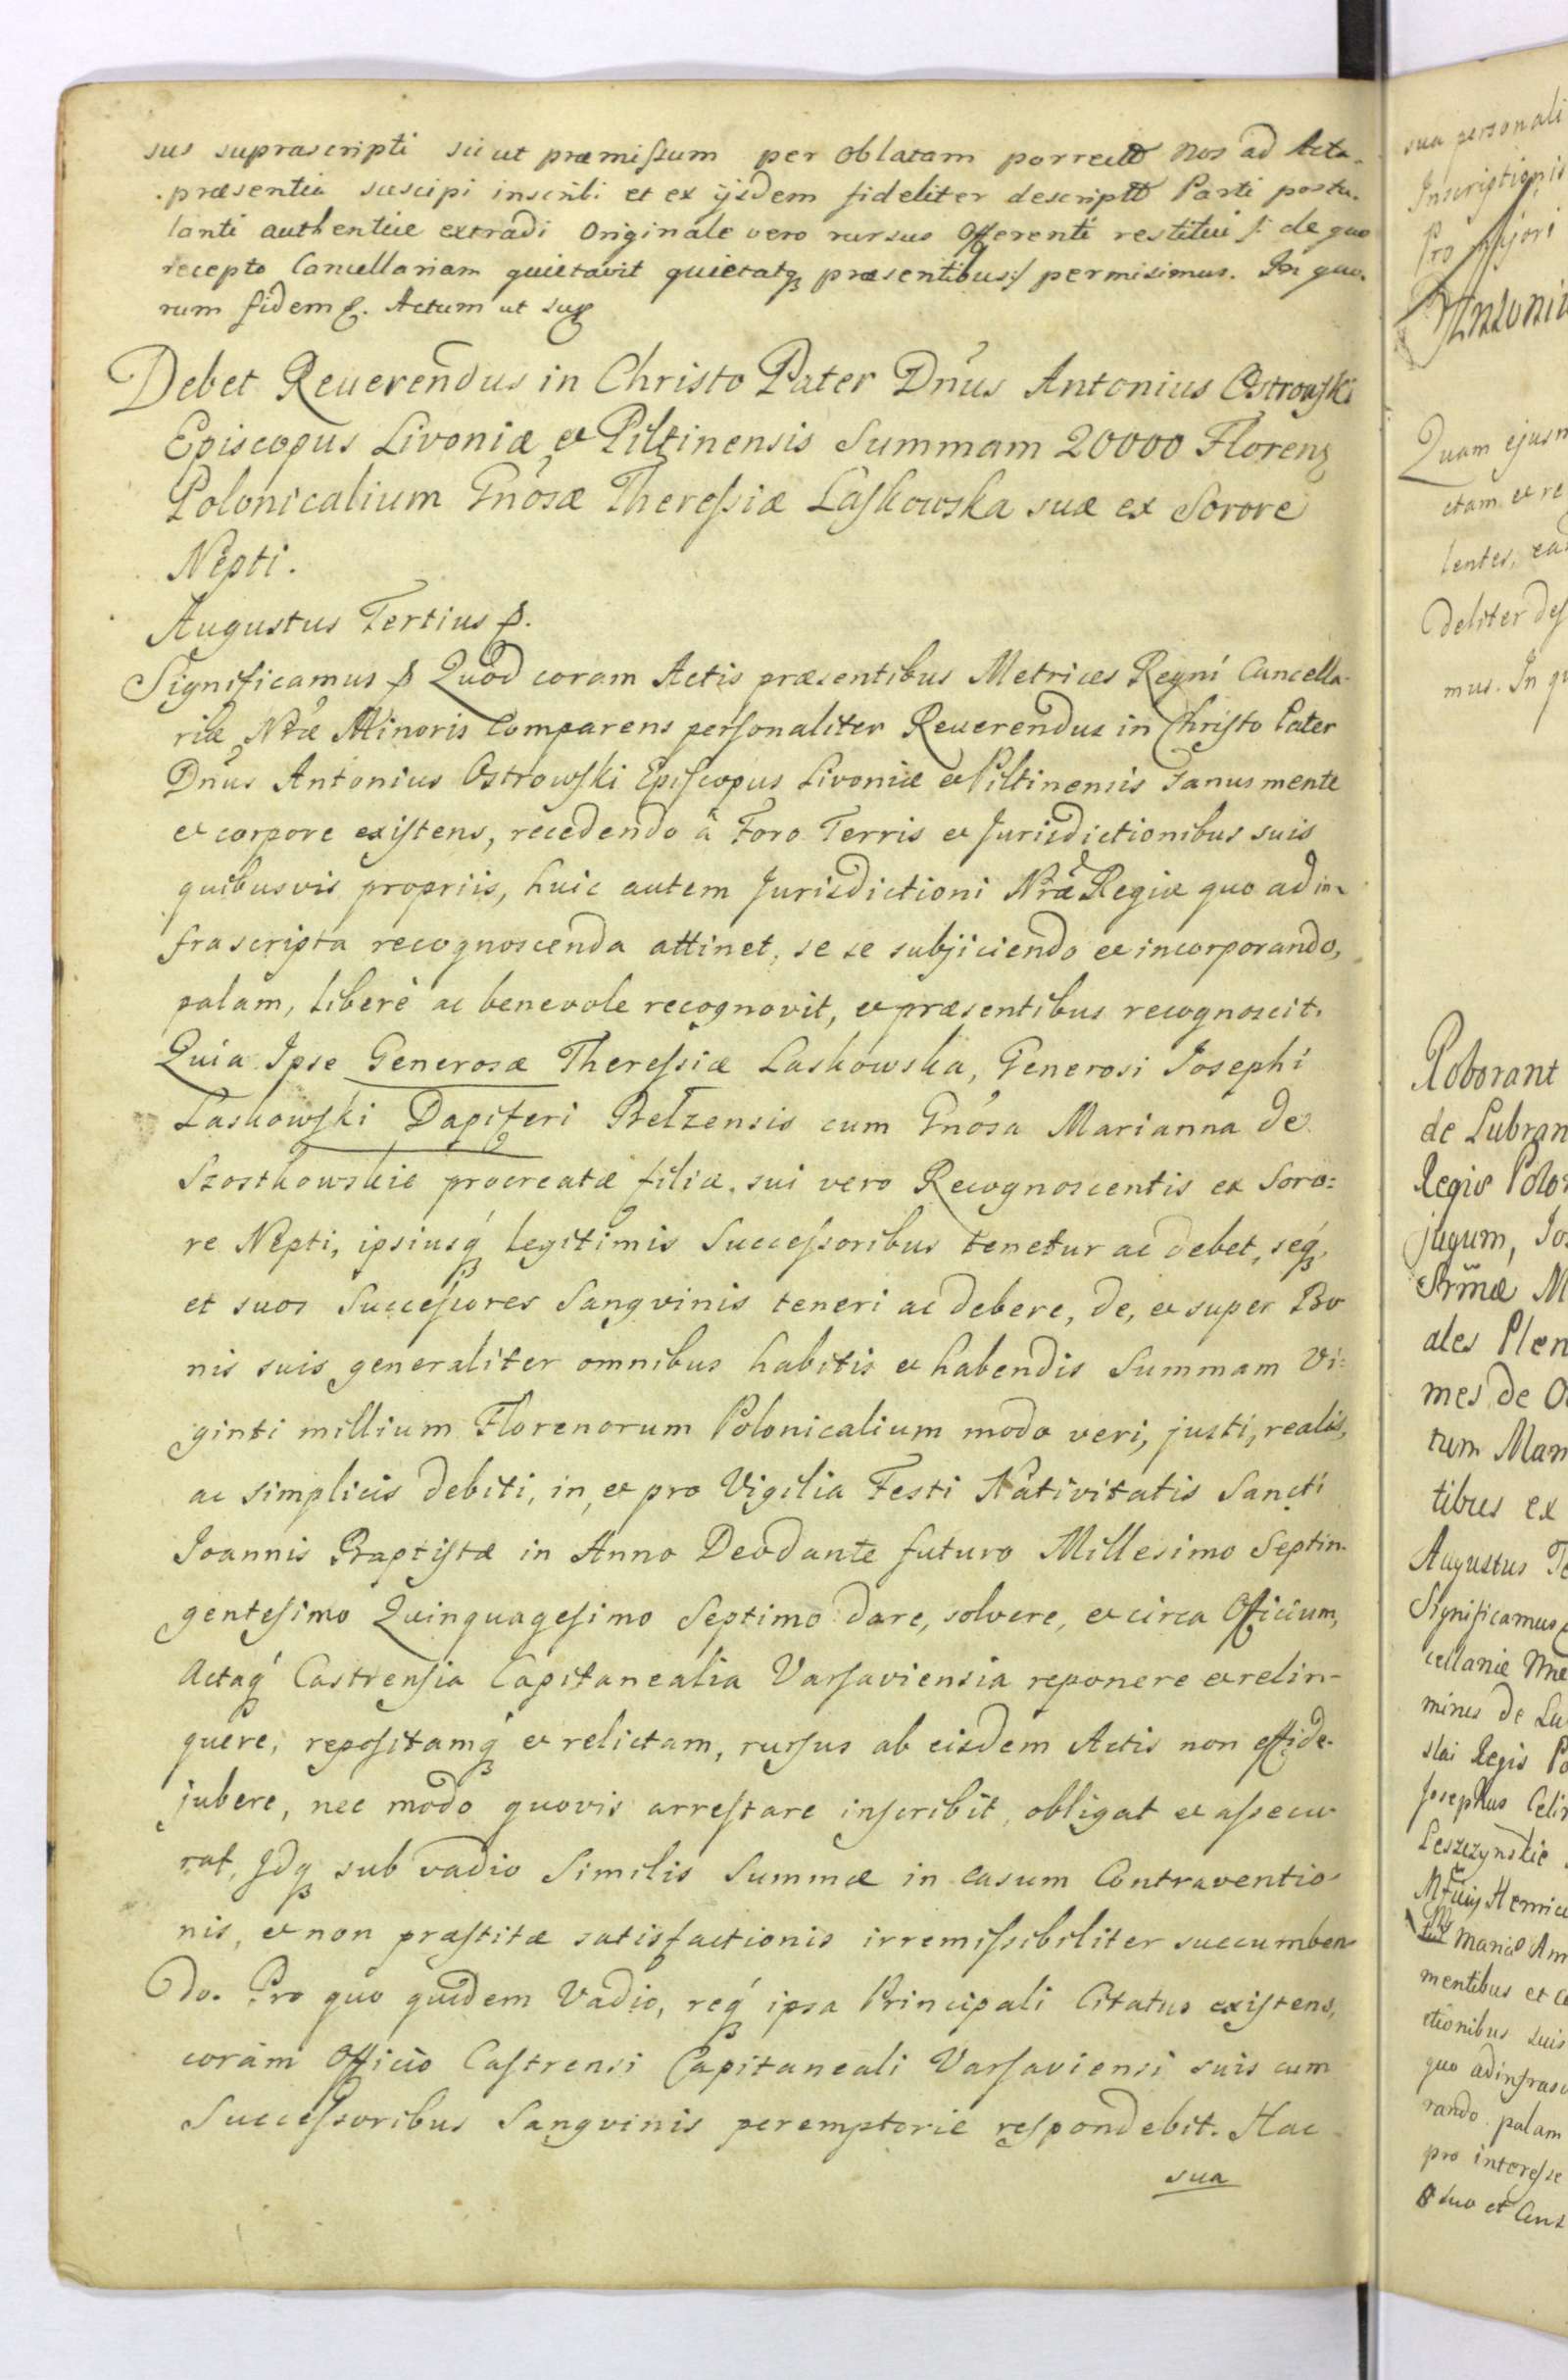 sus suprascripti sicut præmissum per Oblatam porrectt Nos ad Acta
præsentia suscipi inscribi et ex ijsdem fideliter descriptt Parti postu-
lanti authentice extradi Originale vero rursus Offerenti restitui /: de quo
recepto Cancellariam quietavit quietatq præsentibus :/ permisimus. In quo-
rum fidem &. Actum ut sup
Debet Reuerendus in Christo Pater Dnus Antonius Ostrowski
Episcopus Livoniæ et Piltinensis Summam 20000 Floren
Polonicalium Gnosæ Theressiæ Laskowska suæ ex Sorore
Nepti.
Augustus Tertius &.
Significamus & Quod coram Actis præsentibus Metrices Regni Cancella-
riæ Nræ Minoris Comparens personaliter Reuerendus in Christo Pater
Dnus Antonius Ostrowski Episcopus Livoniæ et Piltinensis Sanus mente
et corpore existens, recedendo â Foro Terris et Jurisdictionibus suis
quibusvis propriis, huic autem Jurisdictioni Nræ Regiæ quo ad in-
frascripta recognoscenda attinet, se se subjiciendo et incorporando,
palam, liberè ac benevole recognovit, et præsentibus recognoscit.
Quia Ipse Generosæ Theressiæ Laskowska, Generosi Josephi
Laskowski Dapiferi Belzensis cum Gnosa Marianna de
Szostkowskie procreatæ filiæ, sui vero Recognoscentis ex Soro=
re Nepti, ipsiusq legitimis Successoribus tenetur ac debet, seq
et suos Successores Sangvinis teneri ac debere, de, et super Bo
nis suis generaliter omnibus habitis et habendis Summam Vi=
ginti millium Florenorum Polonicalium modo veri, justi, realis,
ac simplicis debiti, in, et pro Vigilia Festi Nativitatis Sancti
Joannis Baptistæ in Anno Deo dante futuro Millesimo Septin-
gentesimo Quinquagesimo Septimo dare, solvere, et circa Officium,
Actaq Castrensia Capitanealia Varsaviensia reponere et relin-
quere, repositamq et relictam, rursus ab eisdem Actis non effide-
jubere, nec modo quovis arrestare inscribit, obligat et assecu-
rat, Idq sub vadio Similis Summæ in casum Contraventio-
nis, et non præstitæ satisfactionis irremissibiliter succumben-
do. Pro quo quidem Vadio, req ipsa Principali Citatus existens,
coram Officio Castrensi Capitaneali Varsaviensi suis cum
Successoribus Sangvinis peremptorie respondebit. Hac
sua
sua personali
Inscriptionis
Pro Majori
Antoniu
Quam ejusm
ctam et re
lentes, ea
deliter des
mus. In qu
Roborant
de Lubran
Regis Polon
jugum, Jo
Srmæ M
ales Plen
mes de O
tum Man
tibus ex
Augustus Te
Significamus
cellariæ
mines de Lu
slai Regis Po
Josephus
Leszczynskie
Henric
Mariæ Am
mentibus et co
ctionibus suis
quo ad infrasc
rando palam
pro interesse
suo et